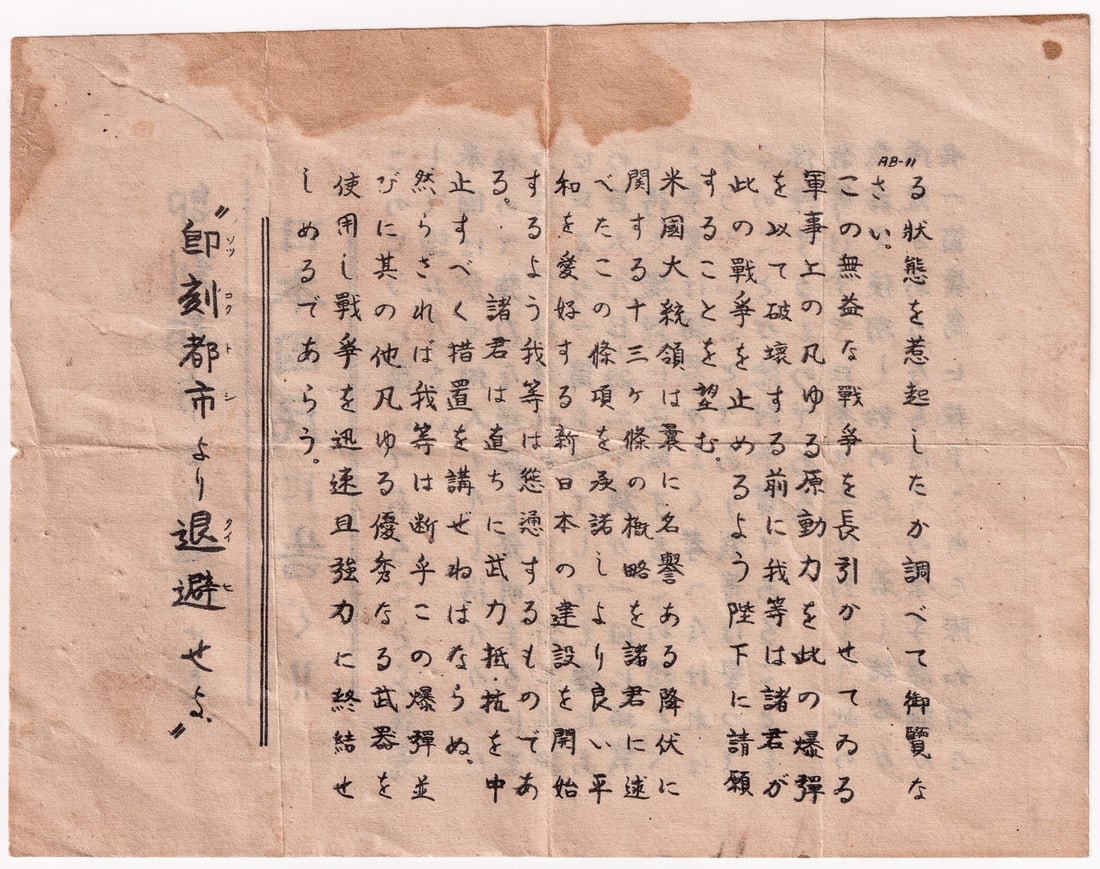 AB-11
る狀態を惹起したか調べて御覽な
さい。
この無益な戰爭を長引かせてゐる
軍事上の凡ゆる原動力を此の爆彈
を以て破壞する前に我等は諸君が
此の戰爭を止めるよう陛下に請願
することを望む。
米國大統領は曩に名譽ある降伏に
関する十三ヶ條の概略を諸君に述
べたこの條項を承諾しより良い平
和を愛好する新日本の建設を開始
するよう我等は慫慂するものであ
る。諸君は直ちに武力抵抗を中
止すべく措置を講ぜねばならぬ、
然らざれば我等は断乎この爆彈並
びに其の他凡ゆる優秀なる武器を
使用し戰爭を迅速且強力に終結せ
しめるであらう。
"卽刻都市より退避せよ"
ソツ コク ト シ タイ ヒ